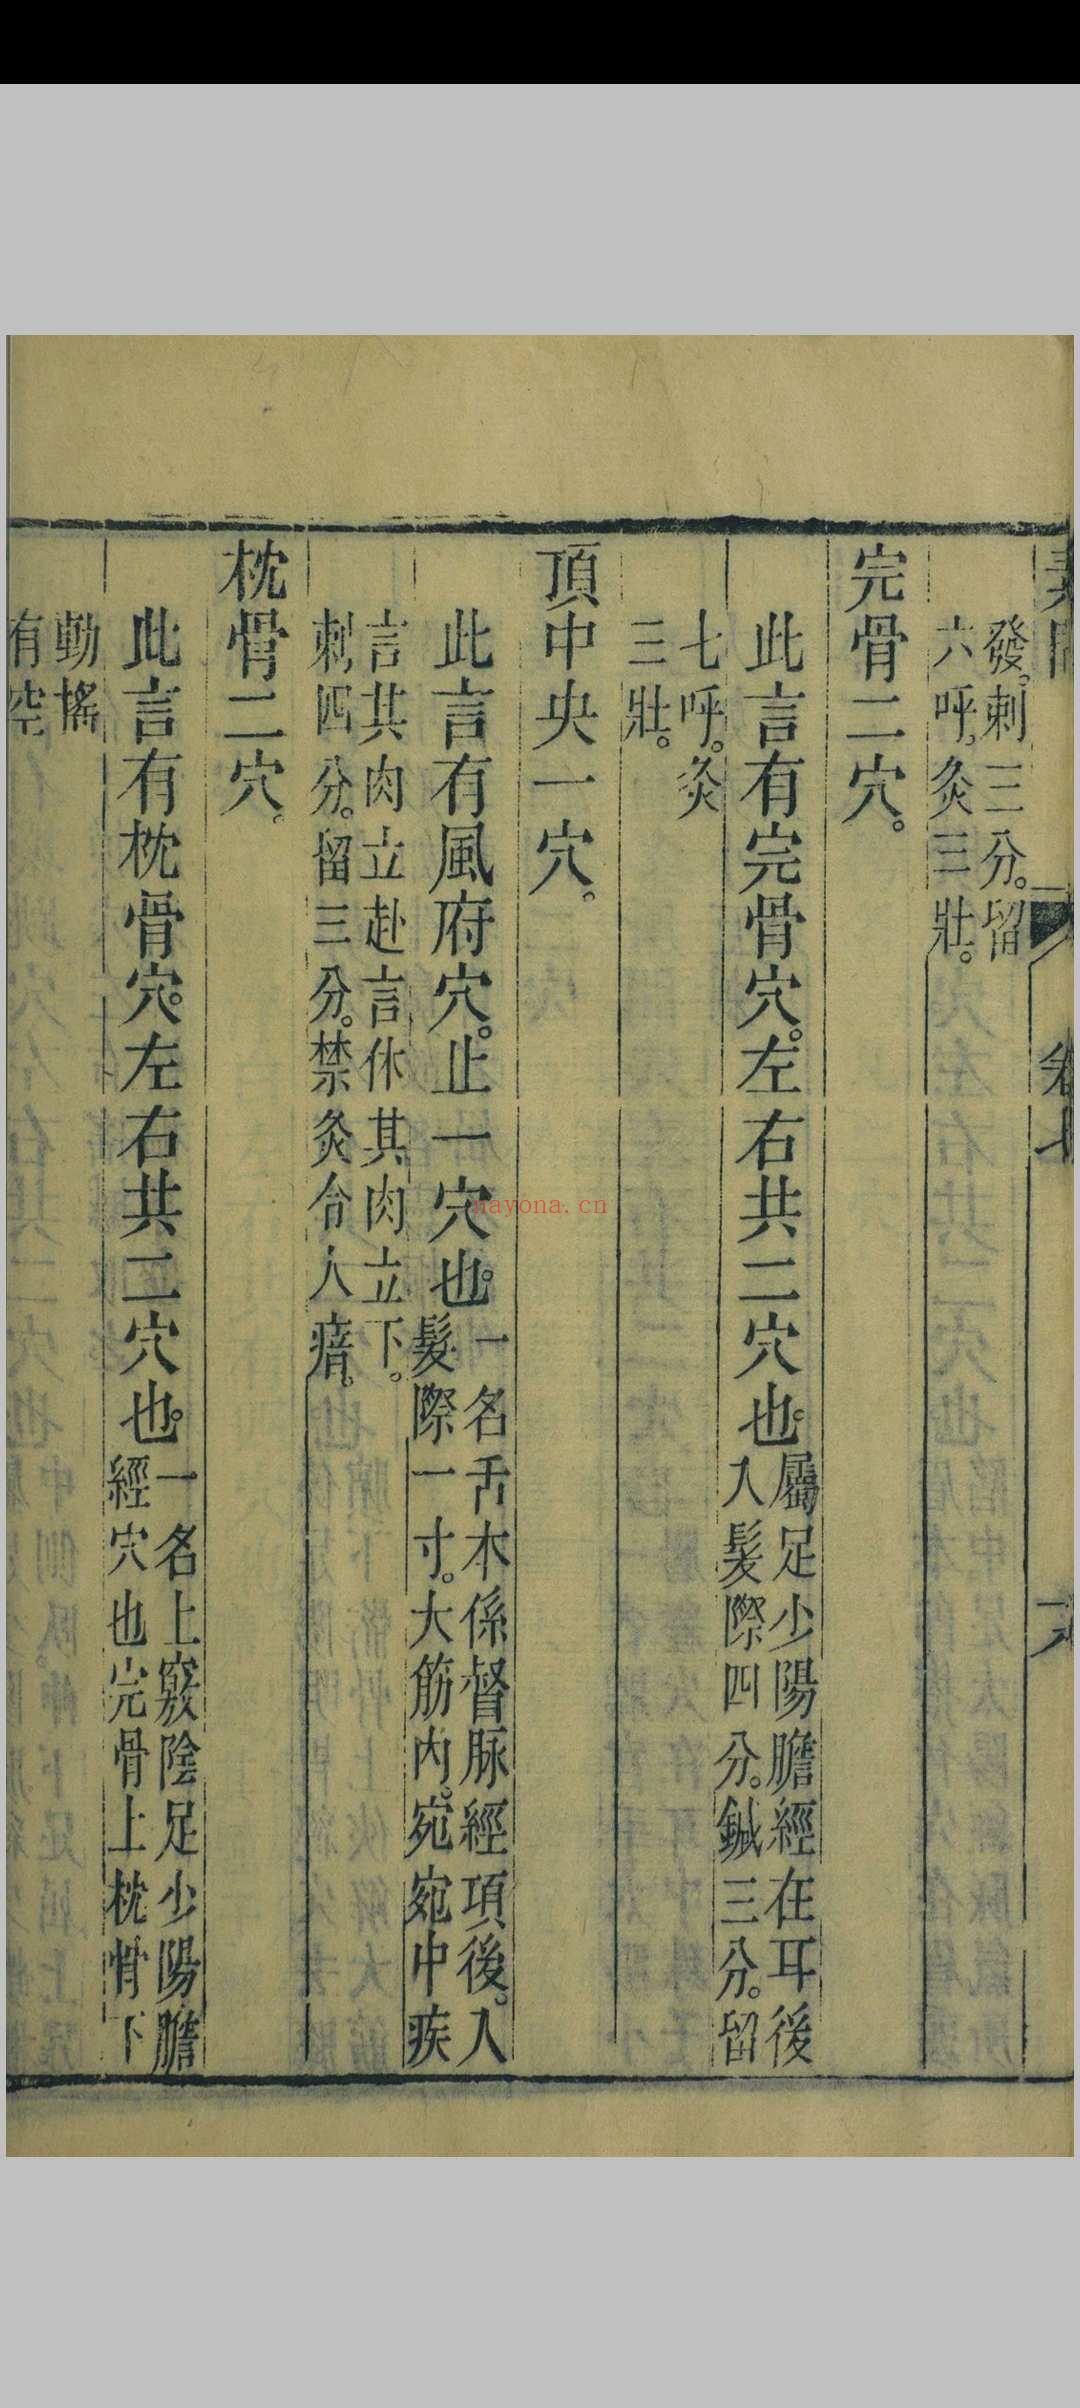 發。刺三分。留
六呼。灸三壯。
完骨二穴。
此言有完骨穴。左右共二穴也。屬足少陽膽經在耳後
入髮際四分。鍼三分。留
七呼。灸
三壯。
頂中央一穴。
此言有風府穴。止一穴也。一名舌本係督脉經項後。入
髮際一寸。大筋內。宛宛中疾
言其肉立赴言休其肉立下。
刺四分。留三分。禁灸令人瘖。
枕骨二穴。
此言有枕骨穴。左右共二穴也。一名上竅陰足少陽膽
經穴也完骨上枕骨下
動搖
有空
nayona.cn